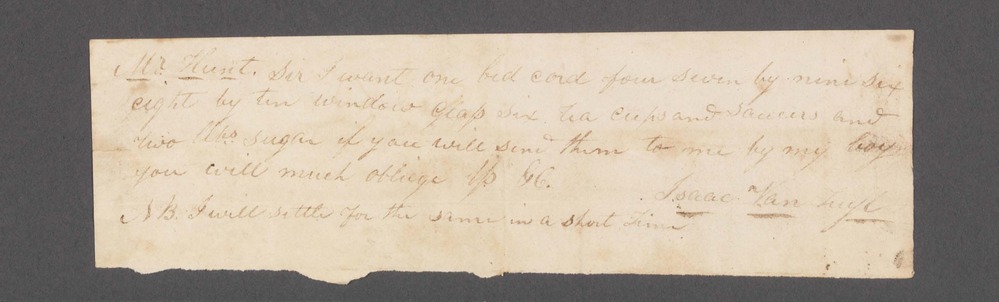 Mr. Hunt. Sir I want one bed cord four seven by nine six
eight by ten window glass six tea cups and saucers and
two lbs sugar if you will send them to me by my boy
you will much obliege &C.
Isaac Van Tuyl
NB. I will settle for the same in a short time